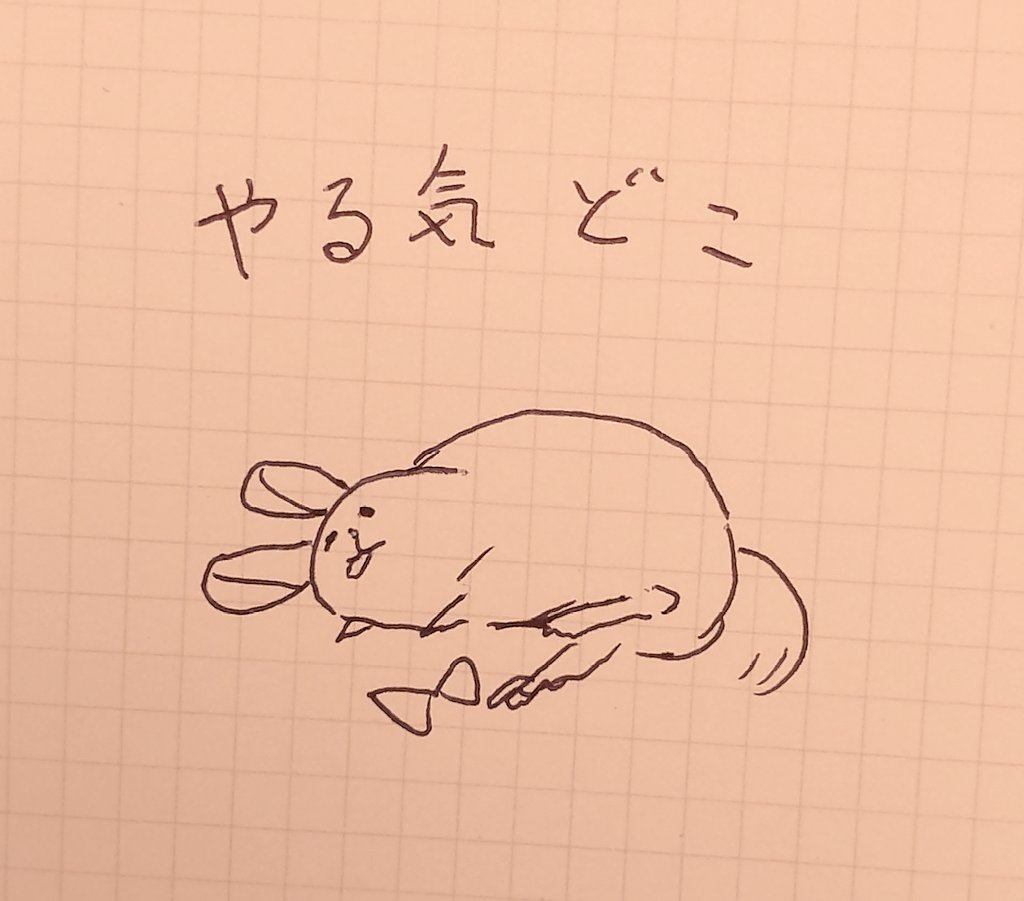 やる気 どこ